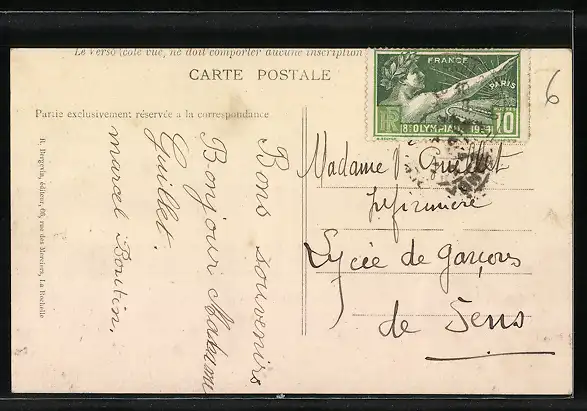 Le Verso (côté vue, ne doit comporter aucune inscription
CARTE POSTALE
Partie exclusivement réservée a la correspondance
Bons souvenirs
Bonjour Madame
Guillet.
marcel Boutin.
R. Bergevin, éditeur, 60, rue des Merciers, La Rochelle
FRANCE
PARIS
RF
8E OLYMPIADE 1924
10
Madame Guillet
Infirmière
Lycée de Garçons
de Sens
6